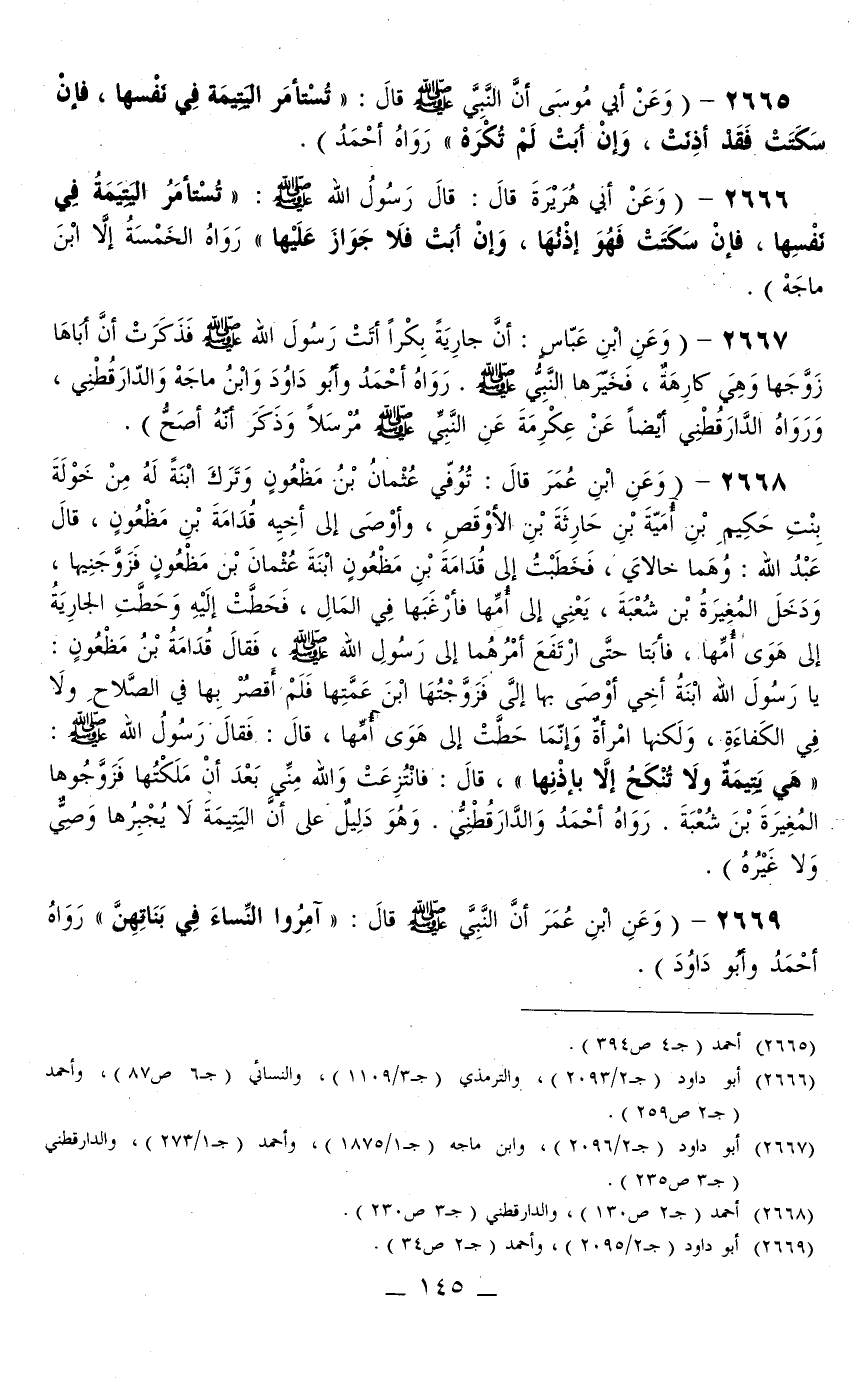 ٢٦٦٥ – ( وَعَنْ أبي مُوسَى أنَّ النَّبيَّ ﷺ قالَ : « تُسْتأمَر اليَتِيمَة فِي نَفْسها ، فإنْ
سَكَتَتْ فَقَدْ أذِنَتْ ، وَإنْ أبَتْ لَمْ تُكْرَهْ » رَوَاهُ أحْمَدُ ) .
٢٦٦٦ – ( وَعَنْ أبي هُرَيْرَةَ قالَ : قالَ رَسُولُ الله ﷺ : « تُسْتأمَرُ اليَتِيمَةُ فِي
نَفْسِها ، فإنْ سَكَتَتْ فَهُوَ إذْنُهَا ، وَإنْ أبَتْ فلَا جَوَازَ عَلَيْها » رَوَاهُ الخَمْسَةُ إلَّا ابْنَ
ماجَهْ ) .
٢٦٦٧ – ( وَعَنِ ابْنِ عَبّاسٍ : أنَّ جارِيَةً بِكْراً أتَتْ رَسُولَ الله ﷺ فَذَكَرَتْ أنَّ أباهَا
زَوَّجَها وَهِيَ كارِهَةٌ ، فَخَيَّرَها النَّبيُّ ﷺ . رَوَاهُ أحْمَدُ وأبُو دَاوُدَ وَابْنُ ماجَهْ وَالدّارَقُطْنِي ،
وَرَوَاهُ الدَّارَقُطْنِي أيْضاً عَنْ عِكْرِمَةَ عَنِ النَّبيِّ ﷺ مُرْسَلاً وَذَكَرَ أنّهُ أصَحُّ ) .
٢٦٦٨ – ( وَعَنِ ابْنِ عُمَرَ قالَ : تُوُفّي عُثْمانُ بْنُ مَظْعُونٍ وَتَرَكَ ابْنَةً لَهُ مِنْ خَوْلَةَ
بِنْتِ حَكِيمِ بْنِ أُمَيّةَ بْنِ حَارِثَةَ بْنِ الأوْقَصِ ، وأوْصَى إلى أخِيهِ قُدَامَةَ بْنِ مَظْعُونٍ ، قالَ
عَبْدُ الله : وُهَما خالايَ ، فَخَطَبْتُ إلى قُدَامَةَ بْنِ مَظْعُونٍ ابْنَةَ عُثْمانَ بْن مَظْعُونٍ فَزَوَّجَنِيها ،
وَدَخَلَ المُغِيرَةُ بْن شُعْبَةَ ، يَعْنِي إلى أُمِّها فأرْغَبَها فِي المَالِ ، فَحَطَّتْ إلَيْهِ وَحَطَّتِ الجارِيَةُ
إلى هَوَى أُمِّها ، فأبَتا حتَّى ارْتَفَعَ أمْرُهُما إلى رَسُولِ الله ﷺ ، فَقالَ قُدَامَةُ بْنُ مَظْعُونٍ :
يا رَسُولَ الله ابْنَةُ أخِي أوْصَى بها إلىَّ فَزَوَّجْتُهَا ابْنَ عَمَّتِها فَلَمْ أقصُرْ بِها في الصَّلاحِ ولَا
فِي الكَفاءَةِ ، وَلَكنها امْرأةٌ وَإنّمَا حَطَّتْ إلى هَوَى أُمِّها ، قالَ : فَقالَ رَسُولُ الله ﷺ :
« هَي يَتِيمَةٌ ولَا تُنْكَحُ إلَّا بإذْنِها » ، قالَ : فانْتُزِعَتْ وَالله مِنِّي بَعْدَ أنْ مَلَكْتُها فَزَوَّجُوها
المُغِيرَةَ بْنَ شُعْبَةَ . رَوَاهُ أحْمَدُ وَالدَّارَقُطْنِيُّ . وَهُوَ دَلِيلٌ على أنَّ اليَتِيمَةَ لَا يُجْبِرُها وَصِيٌّ
وَلا غَيْرُهُ ) .
٢٦٦٩ – ( وَعَنِ ابْنِ عُمَرَ أنَّ النَّبيَّ ﷺ قالَ : « آمِرُوا النِّساءَ فِي بَنَاتِهِنَّ » رَوَاهُ
أحْمَدُ وأبُو دَاوُدَ ) .
(٢٦٦٥) أحمد ( جـ٤ ص٣٩٤ ) .
(٢٦٦٦) أبو داود ( جـ٢/٢٠٩٣ ) ، والترمذي ( جـ٣/١١٠٩ ) ، والنسائي ( جـ٦ ص٨٧ ) ، وأحمد
( جـ٢ ص٢٥٩ ) .
(٢٦٦٧) أبو داود ( جـ٢/٢٠٩٦ ) ، وابن ماجه ( جـ١/١٨٧٥ ) ، وأحمد ( جـ١/٢٧٣ ) ، والدارقطني
( جـ٣ ص٢٣٥ ) .
(٢٦٦٨) أحمد ( جـ٢ ص١٣٠ ) ، والدارقطني ( جـ٣ ص٢٣٠ ) .
(٢٦٦٩) أبو داود ( جـ٢/٢٠٩٥ ) ، وأحمد ( جـ٢ ص٣٤ ) .
– ١٤٥ –